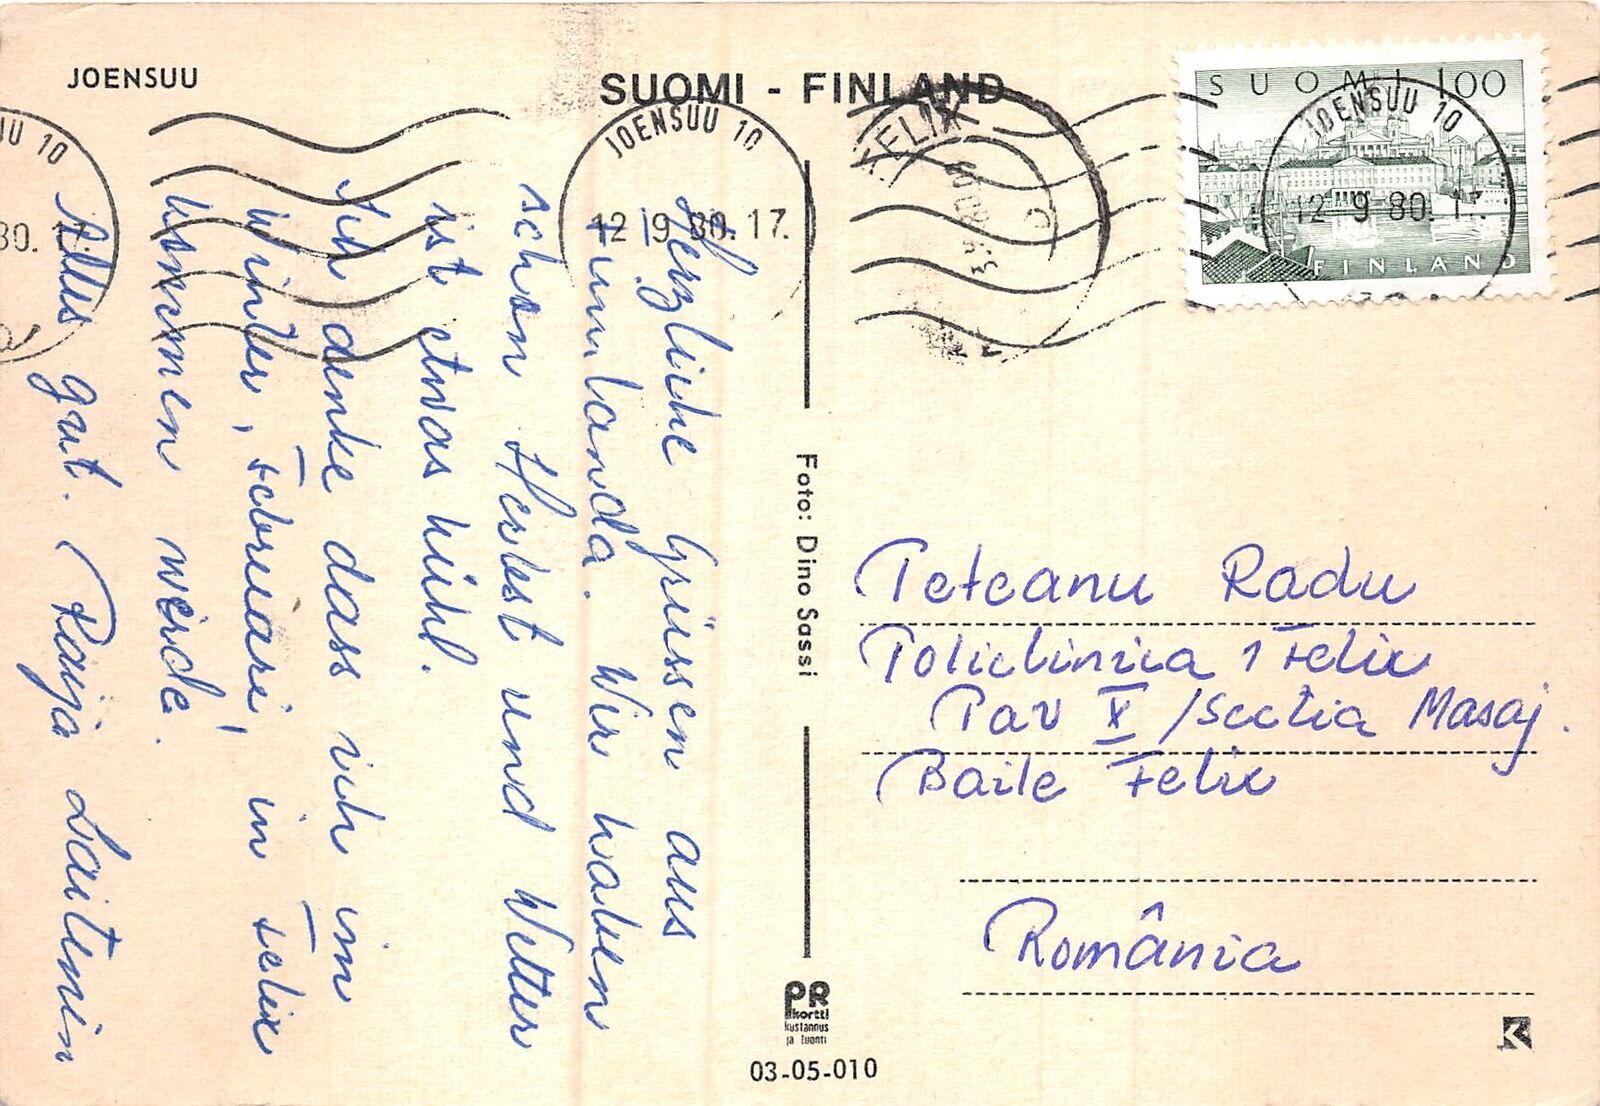 JOENSUU
SUOMI - FINLAND
SUOMI 100
FINLAND
JOENSUU 10
12 9 80. 17.
JOENSUU 10
12 9 80. 17.
JU 10
80. 17.
FELIX
Herzliche Grüssen aus
Finnlanda. Wir haben
schon Herbst und Wetter
ist etwas kühl.
Ich denke dass ich im
Winter, Februari, in Felix
kommen werde.
Alles gut. Raija Laitinen
Foto: Dino Sassi
Teteanu Radu
Policlinica 1 Felix
Pav X / Sectia Masaj.
Baile Felix
România
PR
kortti
kustannus
ja tuonti
03-05-010
K